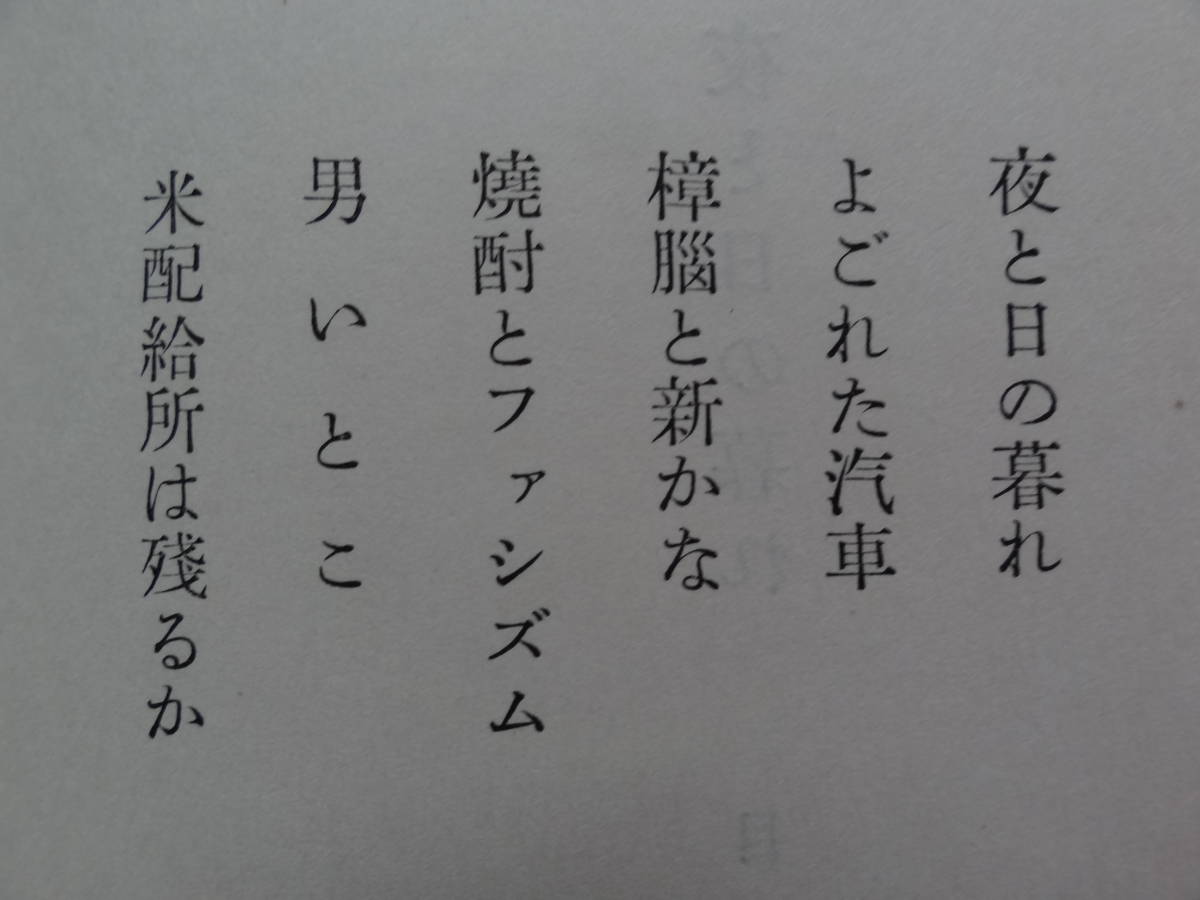 夜と日の暮れ
よごれた汽車
樟腦と新かな
燒酎とファシズム
男いとこ
米配給所は殘るか